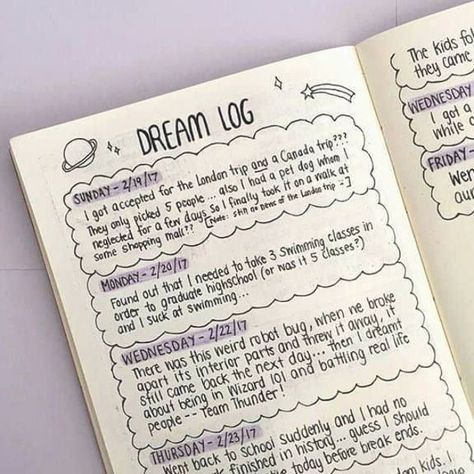 DREAM LOG
SUNDAY - 2/19/17
I got accepted for the London trip and a Canada trip???
They only picked 5 people... also I had a pet dog when I
neglected for a few days so I finally took it on a walk at
some shopping mall??
MONDAY - 2/20/17
Found out that I needed to take 3 swimming classes in
order to graduate highschool (or was it 5 classes?)
and I suck at swimming...
WEDNESDAY - 2/22/17
There was this weird robot bug, when we broke
apart its interior parts and threw it away, it
still came back the next day... then I dreamt
about being in Wizard 101 and battling real life
people -- Team Thunder!
THURSDAY - 2/23/17
Went back to school suddenly and I had no
finished in history... guess I should
today before break ends.
The kids fo
they came
WEDNESDAY
I got a
while
FRIDAY -
Wen
our